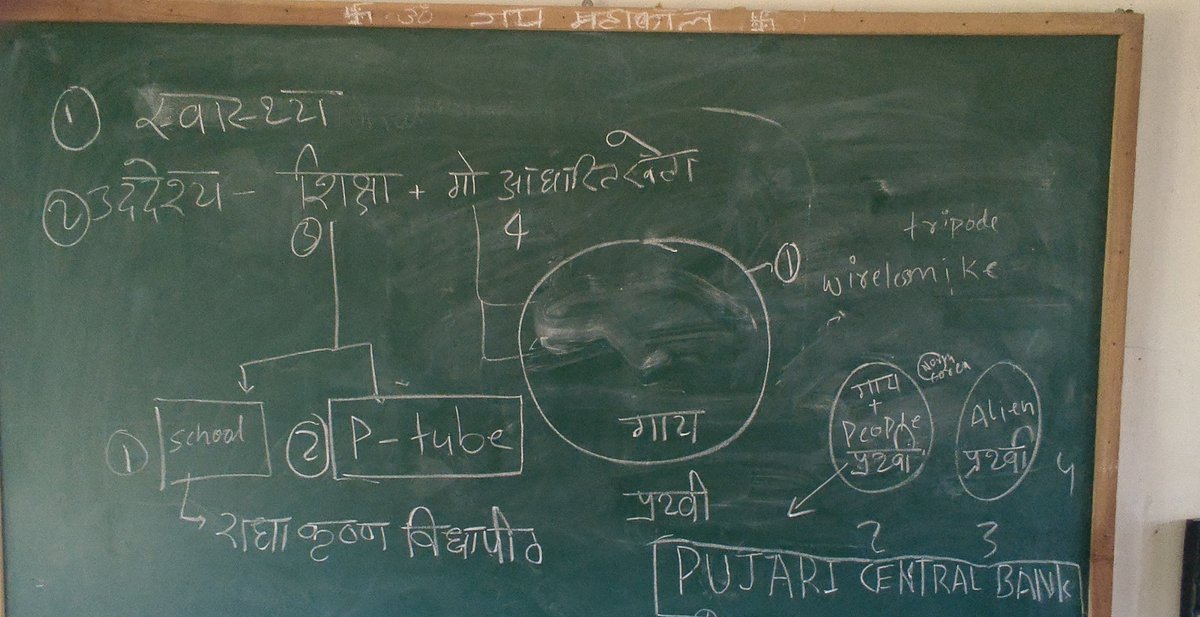 卐 ॐ जय महाकाल 卐
① स्वास्थ्य
② उद्देश्य - शिक्षा + गो आधारित खेती
③ 4
①
tripode
wirelesmike
① school
② P-tube
राधा कृष्ण विद्यापीठ
गाय
प्रथ्वी
गाय
+
People
प्रथ्वी
North
Korea
Alien
प्रथ्वी
2 3
PUJARI CENTRAL BANK